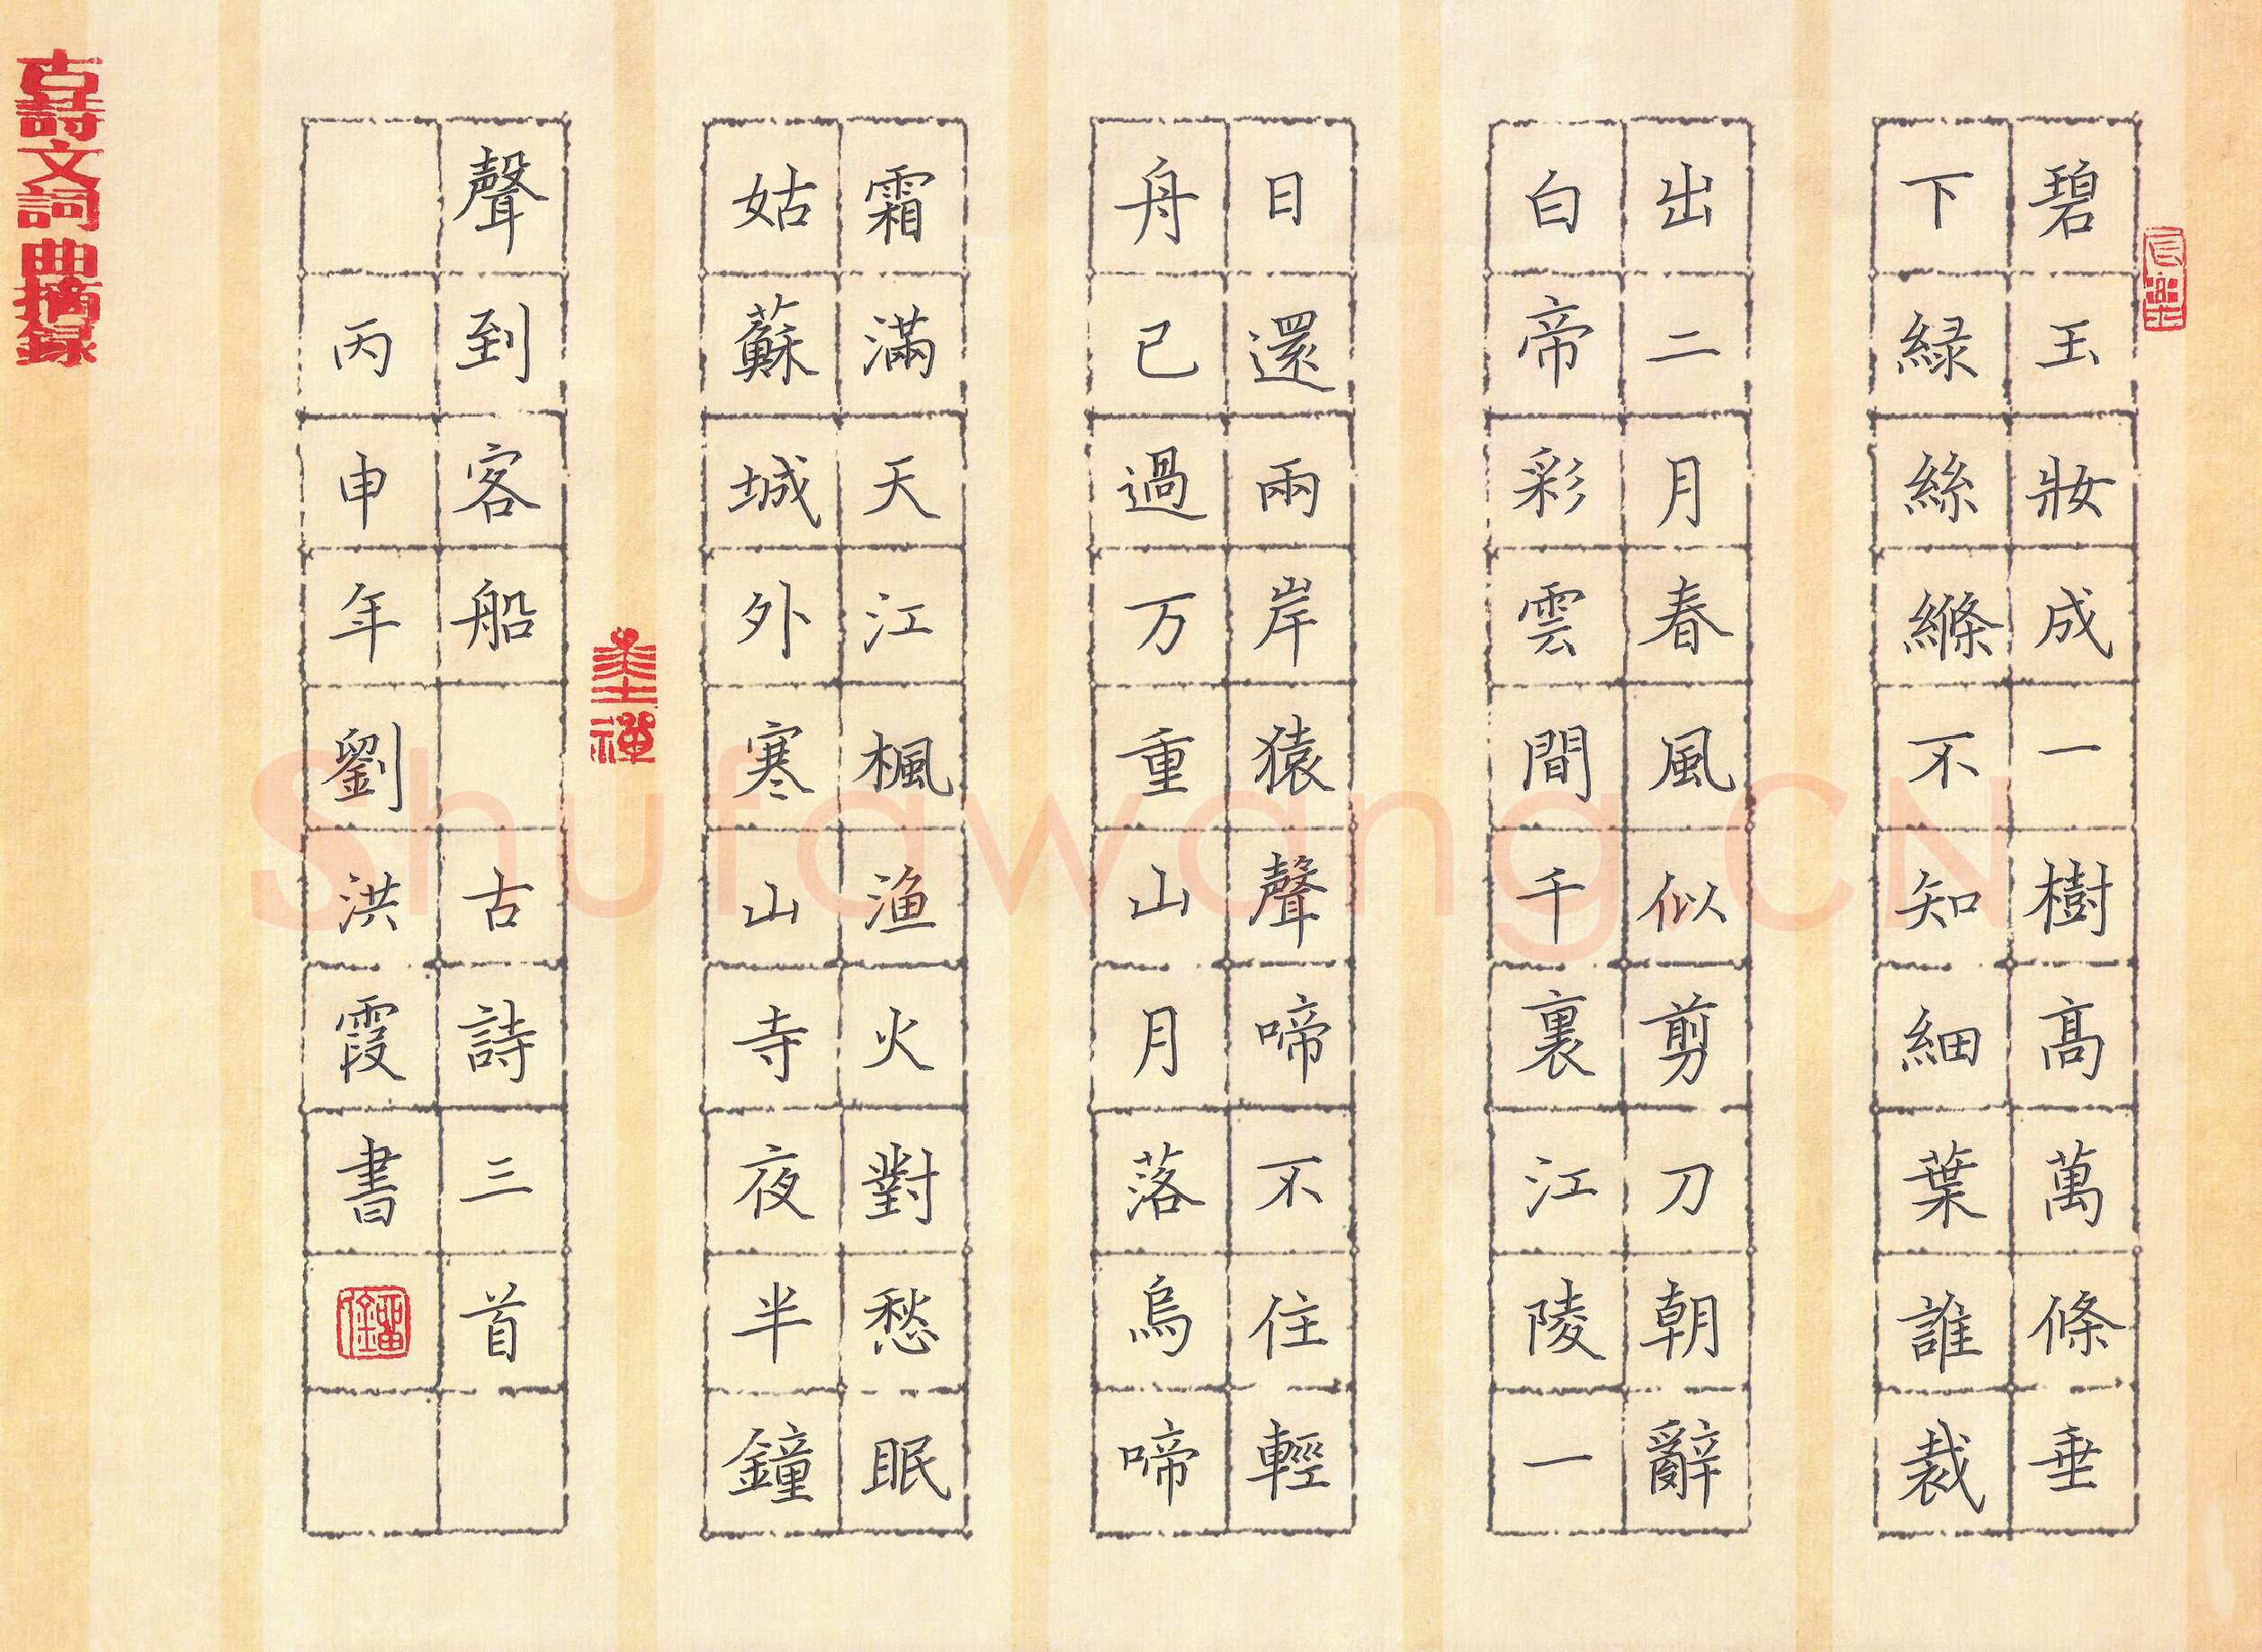 碧玉妝成一樹高萬條垂
下緑絲絛不知細葉誰裁
出二月春風似剪刀朝辭
白帝彩雲間千裏江陵一
日還兩岸猿聲啼不住輕
舟已過万重山月落烏啼
霜滿天江楓渔火對愁眠
姑蘇城外寒山寺夜半鐘
聲到客船 古詩三首
丙申年劉洪霞書
古詩文詞曲摘録
Shufawang.CN